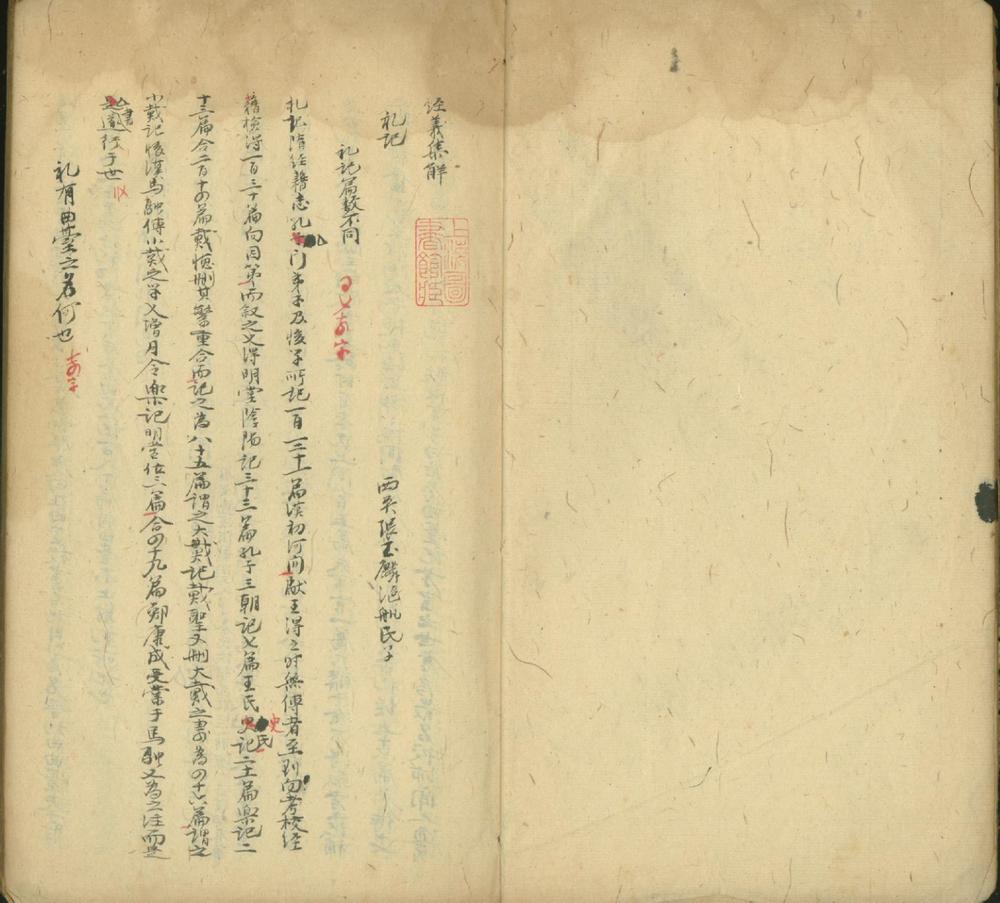 经義集解
礼记
西吴張玉麟
礼记篇数不同
礼记隋经籍志孔门弟子及後学所记一百三十一篇漢初河间献王得之时無傳者至刘向考校经
籍検得一百三十篇向因第而叙之又得明堂陰陽记三十三篇孔子三朝记七篇王氏史氏记二十一篇樂记二
十三篇合二百十四篇戴德删其繁重合而记之為八十五篇谓之大戴记戴聖又删大戴之書為四十六篇谓之
小戴记後漢馬融傳小戴之学又增月令樂记明堂位三篇合四十九篇鄭康成受業于馬融又為之注而是
書遂行于世
礼有曲臺之名何也